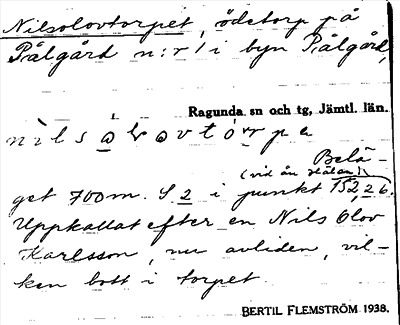 Nilsolovtorpet, ödetorp på
Pålgård n:r 1 i byn Pålgård,
Ragunda sn och tg, Jämtl. län.
nilsòlovtórpa
Belä-
(vid ån
get 700 m. S 2 i punkt 152,26.
Uppkallat efter en Nils Olov
Karlsson, nu avliden, vil-
ken bott i torpet
BERTIL FLEMSTRÖM 1938.